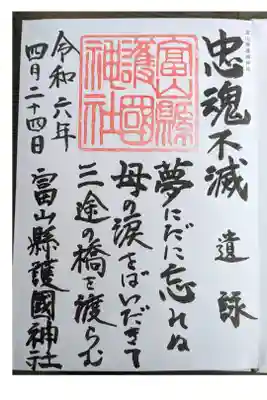 富山縣護國神社
忠魂不滅
遺詠
夢にだに忘れぬ
母の涙をばいだきて
三途の橋を渡らむ
富山縣護國神社
令和六年
四月二十四日
富山縣護國神社